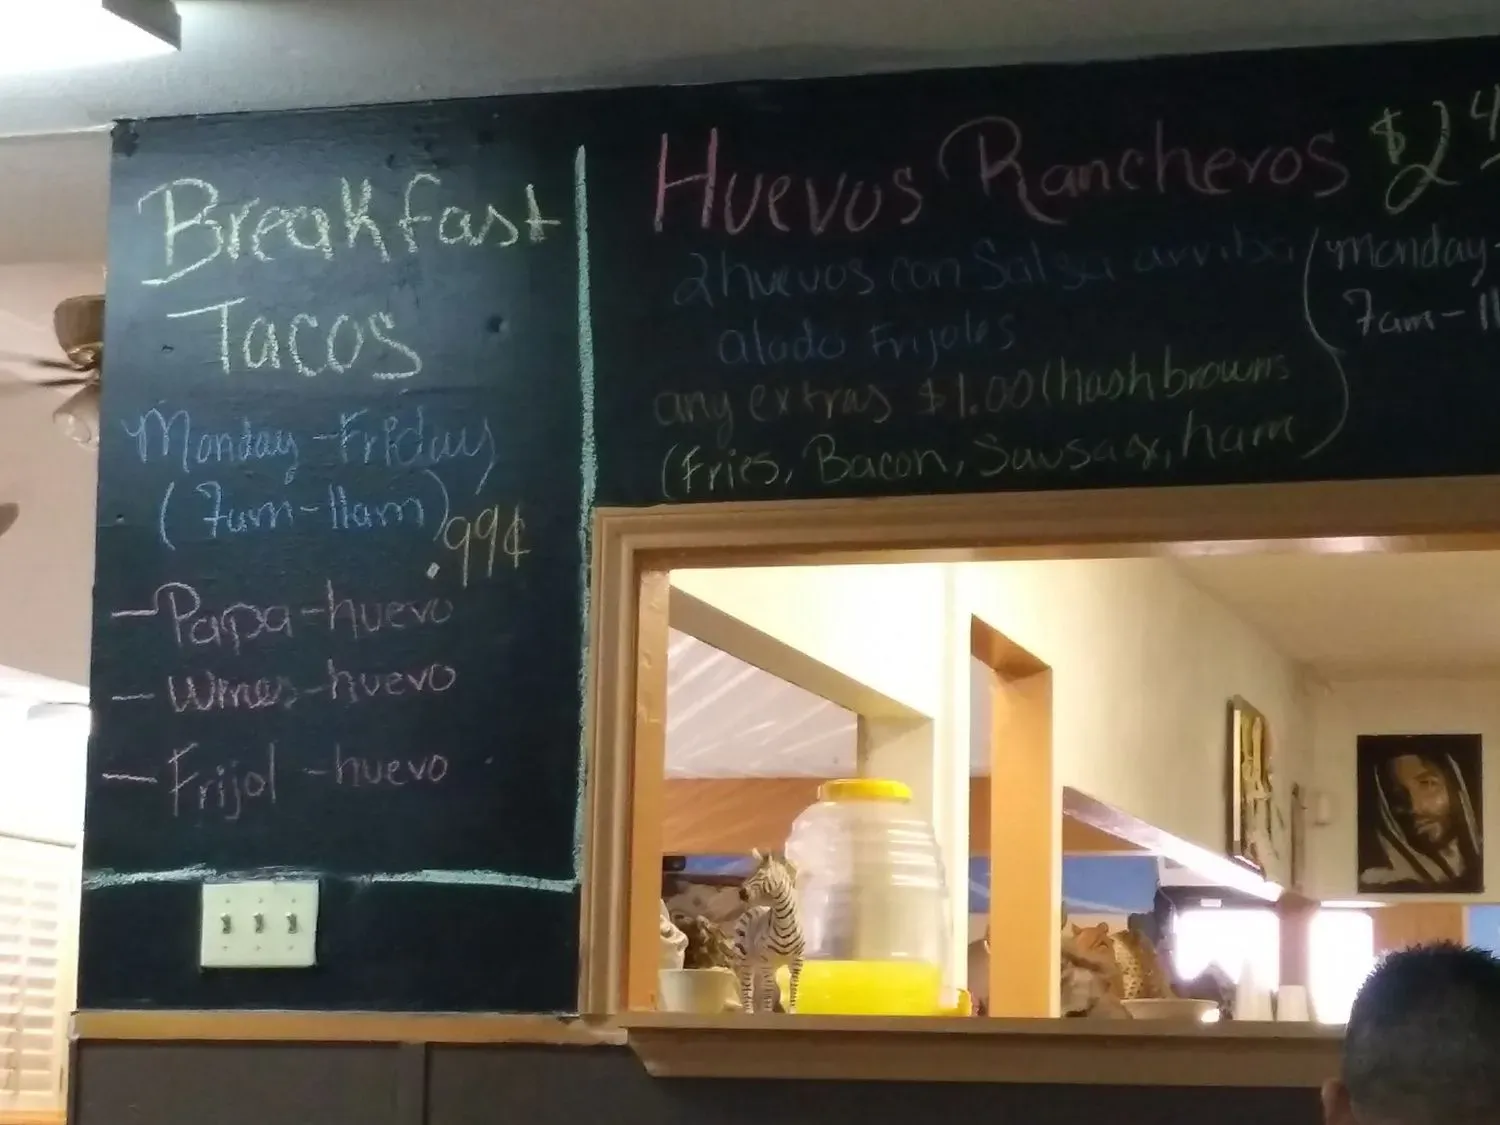 Breakfast
Tacos
Monday-Friday
(7am-11am)
.99¢
-Papa-huevo
-Wines-huevo
-Frijol-huevo
Huevos Rancheros $2
2huevos con Salsa arriba
alado Frijoles
any extras $1.00(hashbrowns
(Fries, Bacon, Sausage, ham)
(Monday-
7am-11